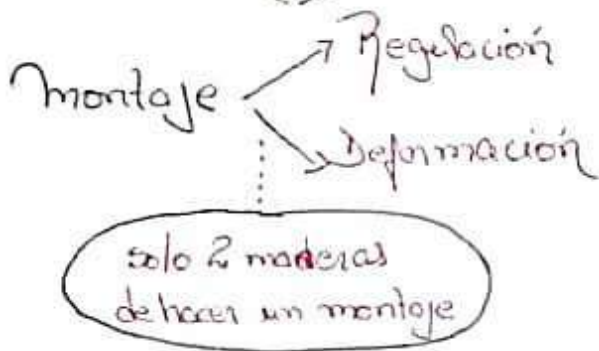 montaje
Regulación
Deformación
solo 2 maderas
de hacer un montaje